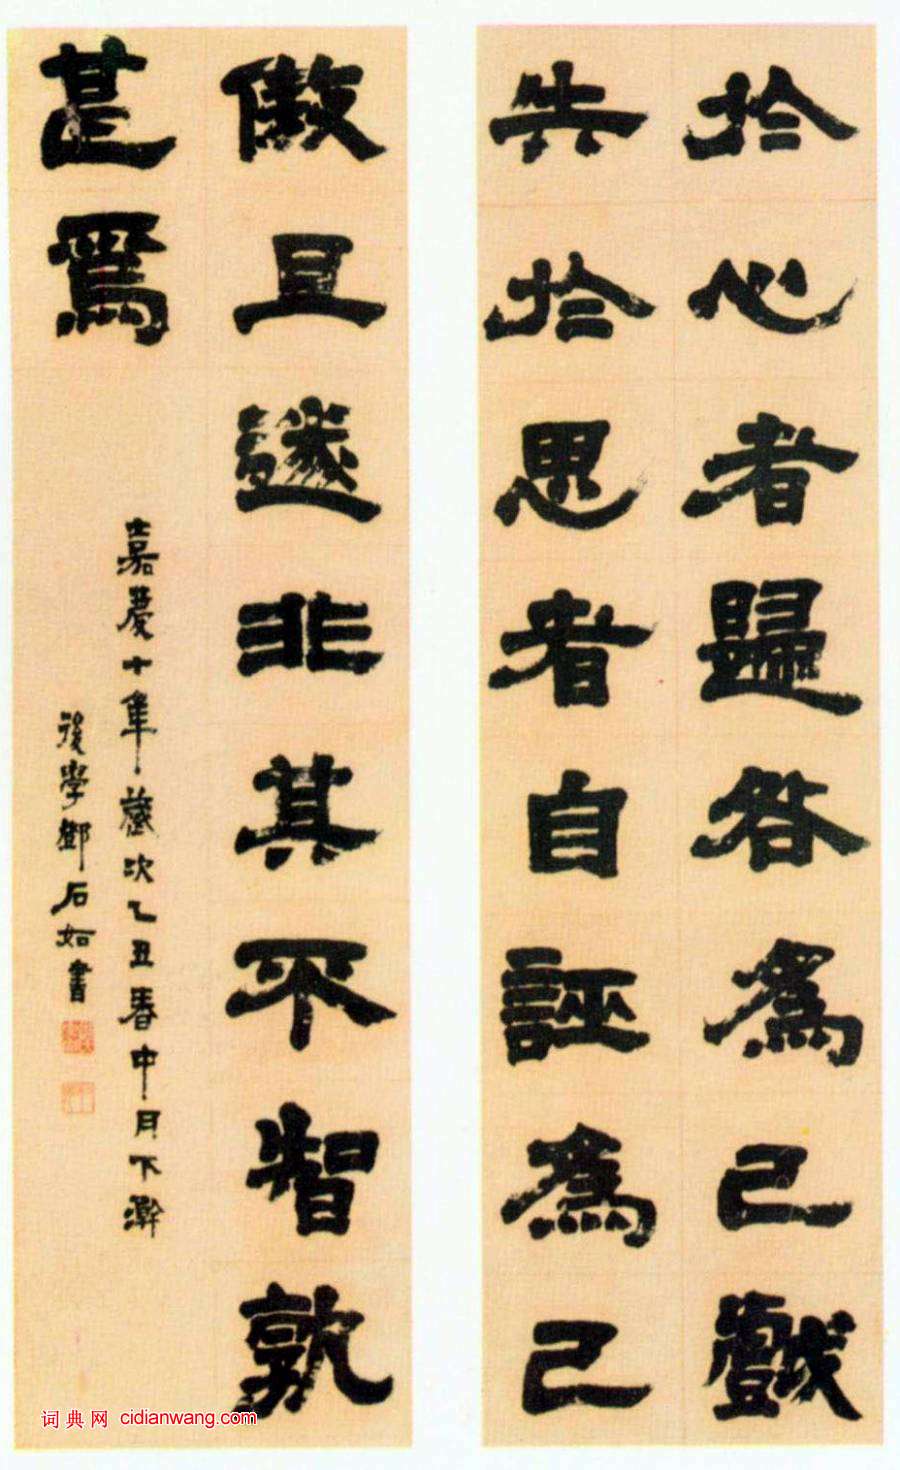 於心者歸咎為己戲
失於思者自誣為己
傲且遂非其不智孰
甚焉
嘉慶十年歲次乙丑春中月下澣
後學鄧石如書
词典网 cidianwang.com